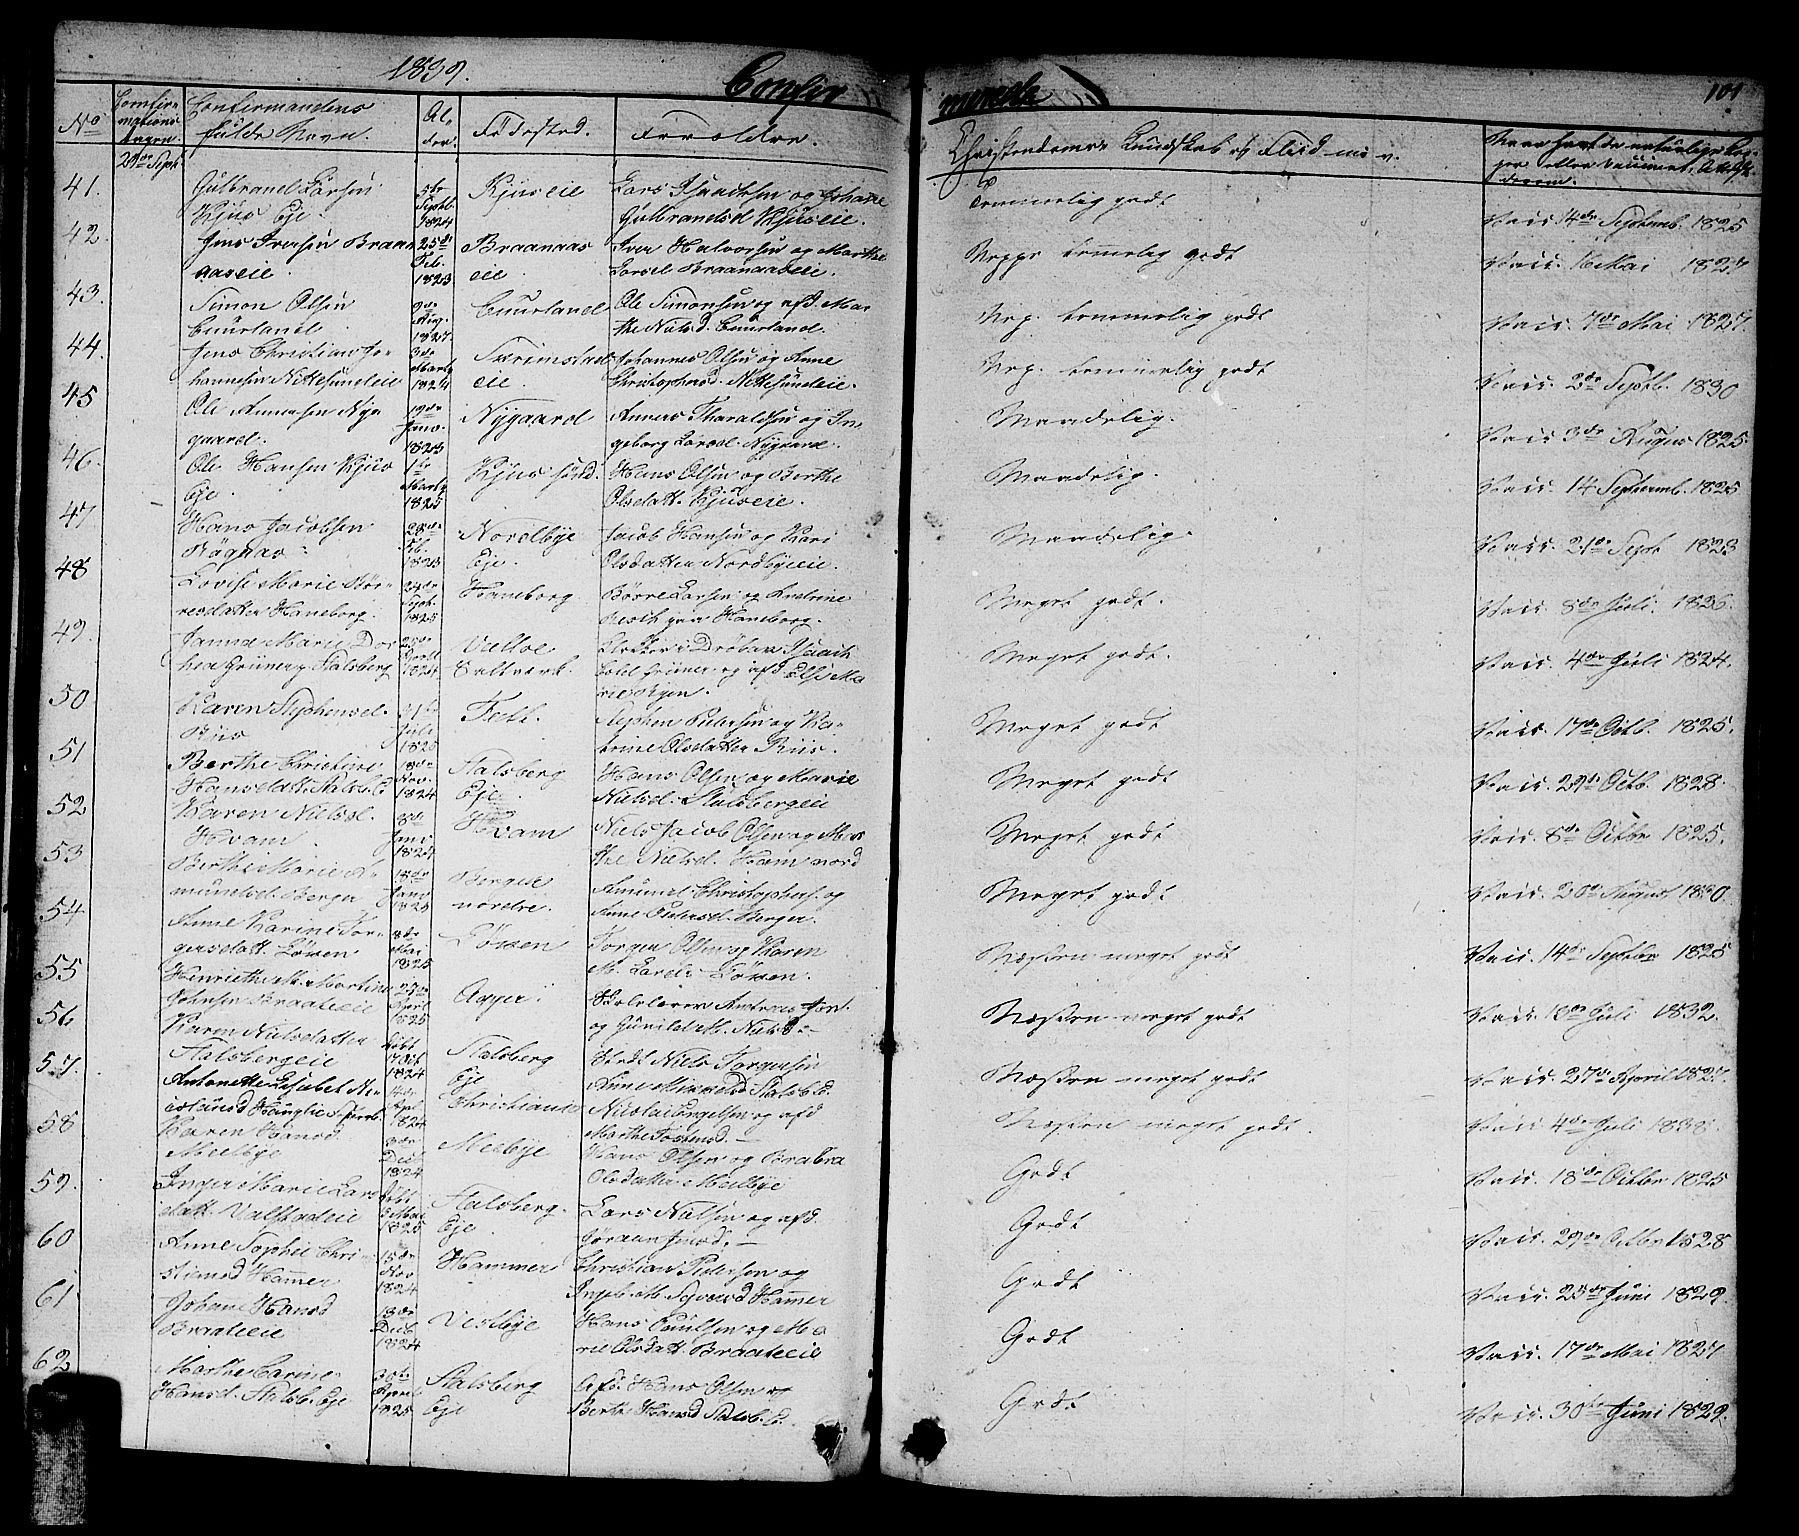 1839.
Confir
merede
101
No
Confir-
mations
dagen.
Confirmandens
fulde Navn.
Al-
der.
Födested.
Forældre.
Christendoms Kundskab og Flid m. v.
29de Septb.
41.
Gulbrand Larsen
Kjus Eje.
5te
Septb.
1824
Kjuseie
Lars Knudsen og Johanne
Gulbrandsd Kjuseie.
Temmelig godt
Vacc. 4de Septemb. 1825
42.
Jens Iversen Braan
aaseie.
25de
Feb.
1823
Braanaas
eie.
Iver Halvorsen og Marthe
Larsd. Braanaaseie.
Neppe temmelig godt
Vacc. Mai 1827
43.
Simon Olsen
Cuurland
9de
Aug.
1824
Cuurland
Ole Simonsen og afd. Mar
the Nielsd. Cuurland.
Nep. temmelig godt
Vacc. 7de Mai 1827.
44.
Jens Christian Jo-
hannesen Nittesundeie
3de
Marts
1824
eie.
Johannes Olsen og Anne
Christophersd. Nittesundeie.
Nep. temmelig godt
Vacc. 2de Septb. 1830
45
Ole Andersen Nyg
gaard.
19de
Janv.
1823
Nygaard
Anders Tharaldsen og In
geborg Larsd. Nygaard.
Maadelig.
Vacc. 3de August 1825.
46.
Ole Hansen Kjus
Eje.
1te
Marts
1825
Hans Olsen og Berthe
Olsdatt. Kjuseie.
Maadelig.
Vacc. 14 Septemb. 1825
47
Hans Jacobsen
Rögnas
28de
Feb.
1823
Nordbye
Eje.
Jacob Hansen og Kari
Olsdatter Nordbyeie.
Maadelig.
Vacc. 21de Sept 1823
48
Lovise Marie Bör-
resdatter Haneborg.
24de
Septb.
1825
Haneborg
Börre Larsen og Andrine
paa Haneborg.
Meget godt.
Vacc. 8de Juli. 1826.
49.
Janna Marie Do
hea Grüner Stalsberg
25de
1824
Valloe
Saltværk.
Klokker i Dröbak
Grüner og afd Else Ma
rie
Meget godt.
Vacc. 4de Juli 1824.
50
Karen Stephensd.
Riis
Juli
1825
Fett.
Stephen Pedersen og Ka-
trine Olsdatter Riis.
Meget godt
Vacc. 17de Octb. 1825.
51
Berthe Christine
Hansdatt. Stalsb. E
18de
Nov.
1824
Stalsberg
Eje.
Hans Olsen og Marie
Nielsd. Stalsbergeie
Meget godt
Vacc. 29de Octb. 1828.
52
Karen Nielsd.
Hvam.
8de
1824
Hvam
Niels Jacob Olsen og Mar
the Nielsd. Hvam nord
Meget godt
Vacc. 8de Octbr 1825.
53
Berthe Marie A-
mundsd. Berger
18de
Janv
1825
Berger
nordre.
Amund Christophers. og
Anne Pedersd. Berger.
Meget godt
Vacc. 20de August 1830.
54
Anne Karine Tor-
gersdatt. Löken
8de
Mai
1825
Löken
Torger Olsen og Karen
M. Larsd. Löken.
Næsten meget godt
Vacc. 14de Septbr 1825
55
Henriethe M. Martine
Johnsen Braateeie
27de
1825
Agger
Andreas
og Gunild M. Niels
Næsten meget godt
Vacc. 18de Juli 1832.
56
Karen Nielsdatter
Stalsbergeie
döbt
17 Oct
1824
Stalsberg
Eje
Niels Torgersen
Anne Stalsb. E.
Næsten meget godt
Vacc. 27de April 1827.
57.
Antonette Elisabet Ni-
colaisd
4de
Apl.
1824
Christiania
Nicolai Engelsen og afd
Marthe
Næsten meget godt.
Vacc. 4de Juli 1838.
58
Karen Hansd
Melbye
3de
Decb
1824
Melbye
Hans Olsen og Brabra
Olsdatter Melbye
Godt
Vacc. 18de Octbr 1825
59.
Inger Marie Lars
datt. Valstadeie
döbt
Mai
1825
Stalsberg.
Eje.
Lars Nielsen og afd.
Jöraan
Godt
Vacc. 29de Octbr 1828
60
Anne Sophie Chri-
stiansd Hammer
15de
Nov
1824
Hammer
Christian Pedersen og
Hammer
Godt
Vacc. 25de Juni 1829.
61
Johanne Hansd
Braateeie
13de
Decb
1824
Visbye
Hans Paulsen og Ma
rie Olsdatt. Braateeie
Godt
Vacc. 17de Mai 1827
62
Marthe Carine
Hansd. Stalsb. Eje
30te
April
1825
Stalsberg
Eje
Hans Olsen og
Berthe Hansd Stalsb. E.
Godt
Vacc. 30te Juni 1829.